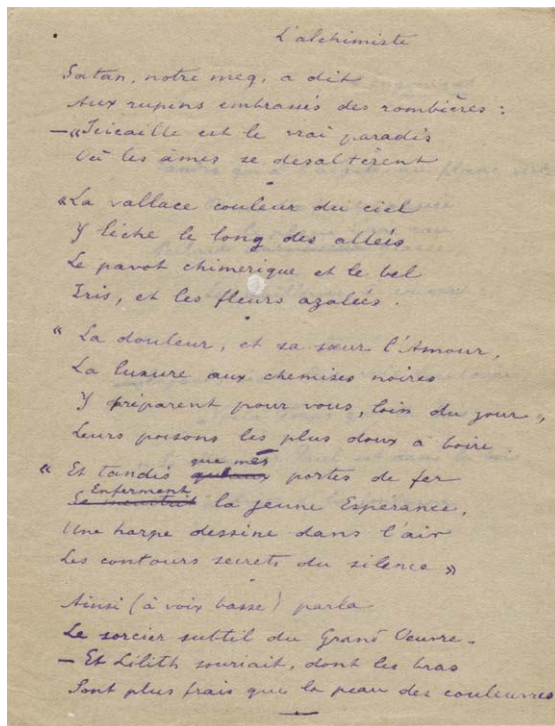 L'alchimiste
Satan, notre meg, a dit
Aux rupins embrassés des rombières :
— "Icicaille est le vrai paradis
Où les âmes se desaltèrent
"La vallace couleur du ciel
Y lèche le long des allées
Le pavot chimerique et le bel
Iris, et les fleurs azalées.
" La douleur, et sa sœur l'Amour,
La luxure aux chemises noires
Y préparent pour vous, loin du jour,
Leurs poisons les plus doux à boire
que mes
" Et tandis portes de fer
Enferment
la jeune Esperance,
Une harpe dessine dans l'air
Les contours secrets du silence "
Ainsi (à voix basse) parla
Le sorcier subtil du Grand Oeuvre.
— Et Lilith souriait, dont les bras
Sont plus frais que la peau des couleuvres